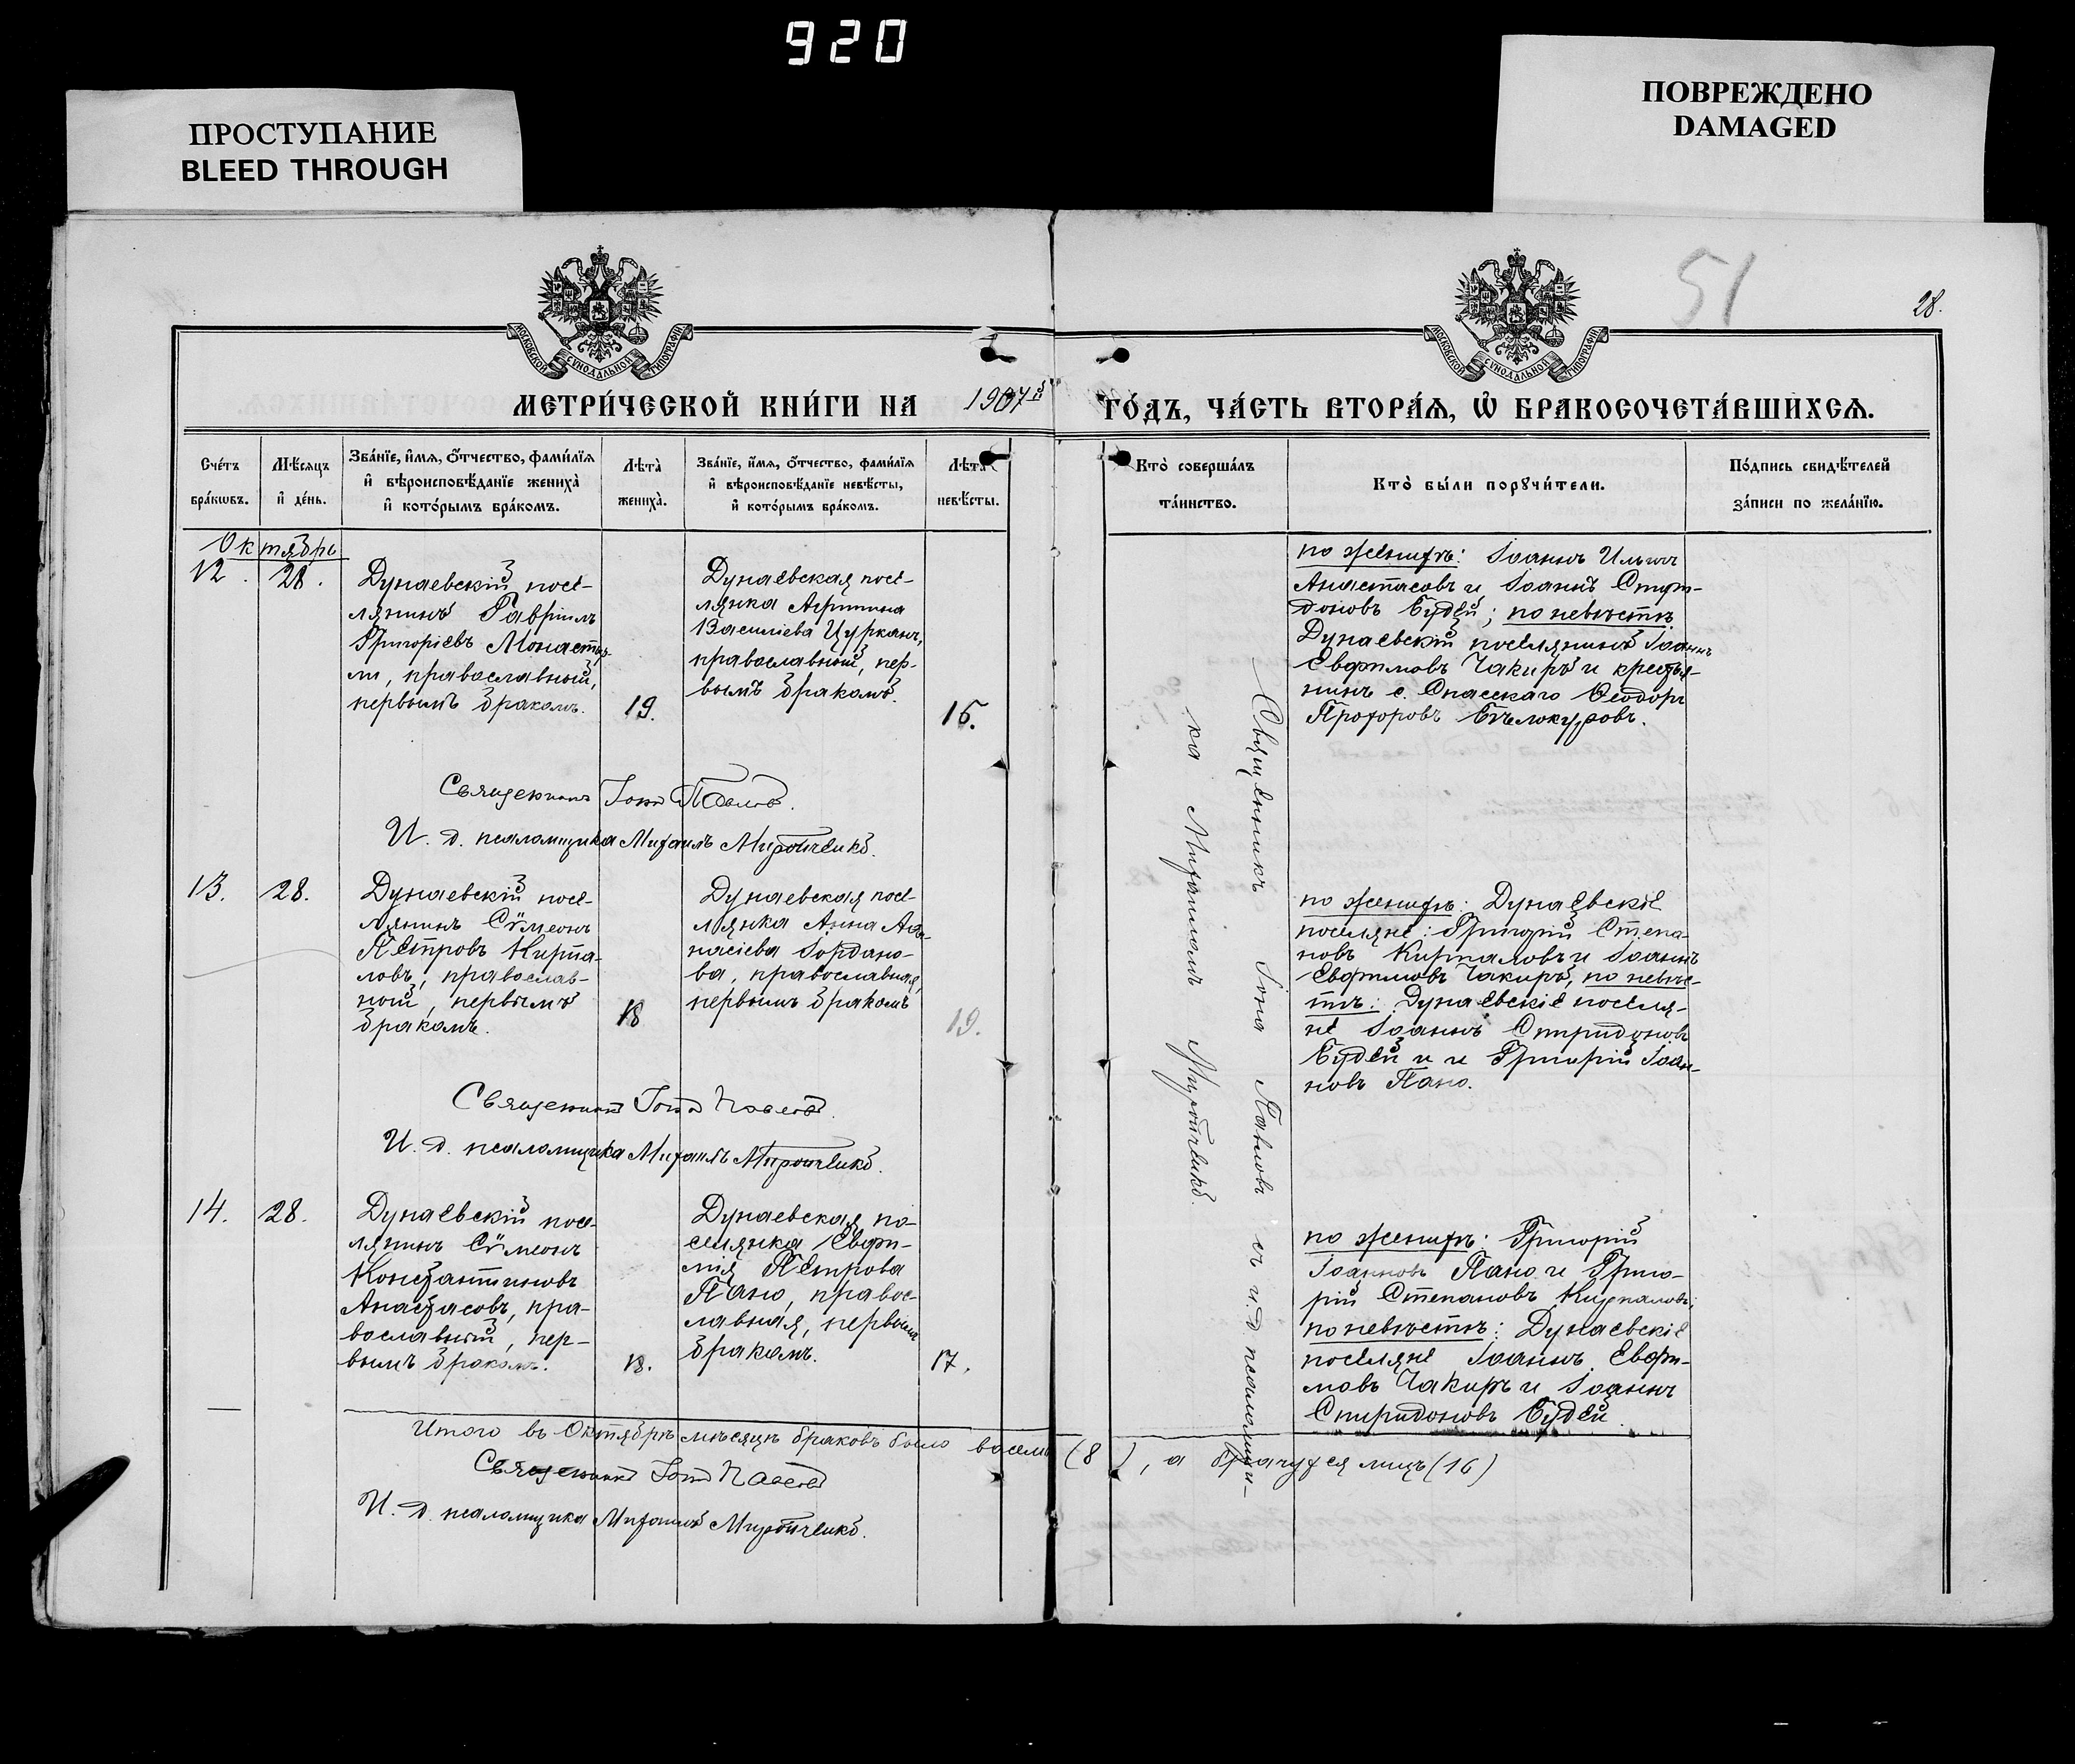 920
ПРОСТУПАНИЕ
BLEED THROUGH
ПОВРЕЖДЕНО
DAMAGED
51
28.
МОСКОВСКОЙ СѴНОДАЛЬНОЙ ТИПОГРАФІИ
МОСКОВСКОЙ СѴНОДАЛЬНОЙ ТИПОГРАФІИ
МЕТРИ́ЧЕСКОЙ КНИ́ГИ НА 1907й ГО́ДЪ, ЧА́СТЬ ВТОРА́Я, Ѡ҆ БРАКОСОЧЕТА́ВШИХСЯ.
Сче́тъ
бра́кѡвъ.
Мѣ́сяцъ
и҆ де́нь.
Зва́нїе, и҆́мя, ѻ҆́тчество, фами́лїя
и҆ вѣроисповѣ́данїе жениха̀
и҆ кото́рымъ бра́комъ.
Лѣта̀
жениха̀.
Зва́нїе, и҆́мя, ѻ҆́тчество, фами́лїя
и҆ вѣроисповѣ́данїе невѣ́сты,
и҆ кото́рымъ бра́комъ.
Лѣта̀
невѣ́сты.
Кто̀ соверша́лъ
та́инство.
Кто̀ бы́ли порꙋчи́тели.
По́дпись свидѣ́телей
за́писи по жела́нїю.
Октябрь
12. 28.
Дунаевскій посе-
лянинъ Гавріилъ
Григоріевъ Монасты-
ли, православный,
первымъ бракомъ.
19.
Дунаевская посе-
лянка Агрипина
Василіева Цурканъ,
православной, пер-
вымъ бракомъ.
16.
по женихѣ: Іоаннъ Ильичъ
Анастасовъ и Іоаннъ Спири-
доновъ Будей; по невѣстѣ
Дунаевскій поселянинъ Іоаннъ
Евфимовъ Чакиръ и крестья-
нинъ с. Спасскаго Ѳеодоръ
Прохоровъ Бѣлокуровъ.
Священникъ Іона Павловъ.
И. д. псаломщика Михаилъ Миройченко.
13. 28.
Дунаевскій посе-
лянинъ Сѵмеонъ
Петровъ Кирпа-
ловъ, православ-
ной, первымъ
бракомъ.
18
Дунаевская посе-
лянка Анна Аѳа-
насіева Іордано-
ва, православная,
первымъ бракомъ
19.
по женихѣ: Дунаевскіе
поселяне: Григорій Степа-
новъ Кирпаловъ и Іоаннъ
Евфимовъ Чакиръ, по невѣс-
тѣ: Дунаевскіе поселя-
не Іоаннъ Спиридоновъ
Будей и и Григорій Іоан-
новъ Пано.
Священникъ Іона Павловъ
И. д. псаломщика Михаилъ Миройченко.
14. 28.
Дунаевскій посе-
лянинъ Сѵмеонъ
Константиновъ
Анастасовъ, пра-
вославный, пер-
вымъ бракомъ.
18.
Дунаевская по-
селянка Евфи-
мія Петрова
Пано, правос-
лавная, первымъ
бракомъ.
17.
по женихѣ: Григорій
Іоанновъ Пано и Григо-
рій Степановъ Кирпаловъ;
по невѣстѣ: Дунаевскіе
поселяне Іоаннъ Евфи-
мовъ Чакиръ и Іоаннъ
Спиридоновъ Будей.
Священникъ Іона Павловъ съ и.д псаломщи-
ка Михаиломъ Миройченко.
Итого въ Октябрѣ мѣсяцѣ браковъ было восемь (8), а брачущихся лицъ (16)
Священникъ Іона Павловъ
И. д. псаломщика Михаилъ Миройченко.